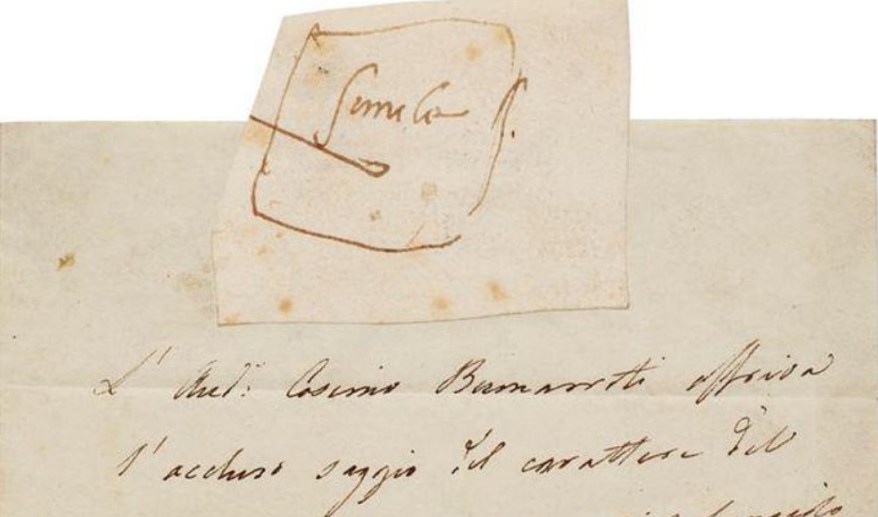 simile
L' Aud.r Cosimo Buonarroti offriva
l'accluso saggio del carattere del